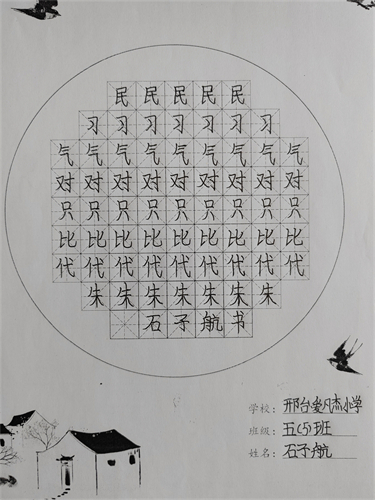 民民民民民
习习习习习习习
气气气气气气气气气
对对对对对对对对对
只只只只只只只只只
比比比比比比比比比
代代代代代代代代代
朱朱朱朱朱朱朱
石子航书
学校：邢台爱凡杰小学
班级：五(5)班
姓名：石子航